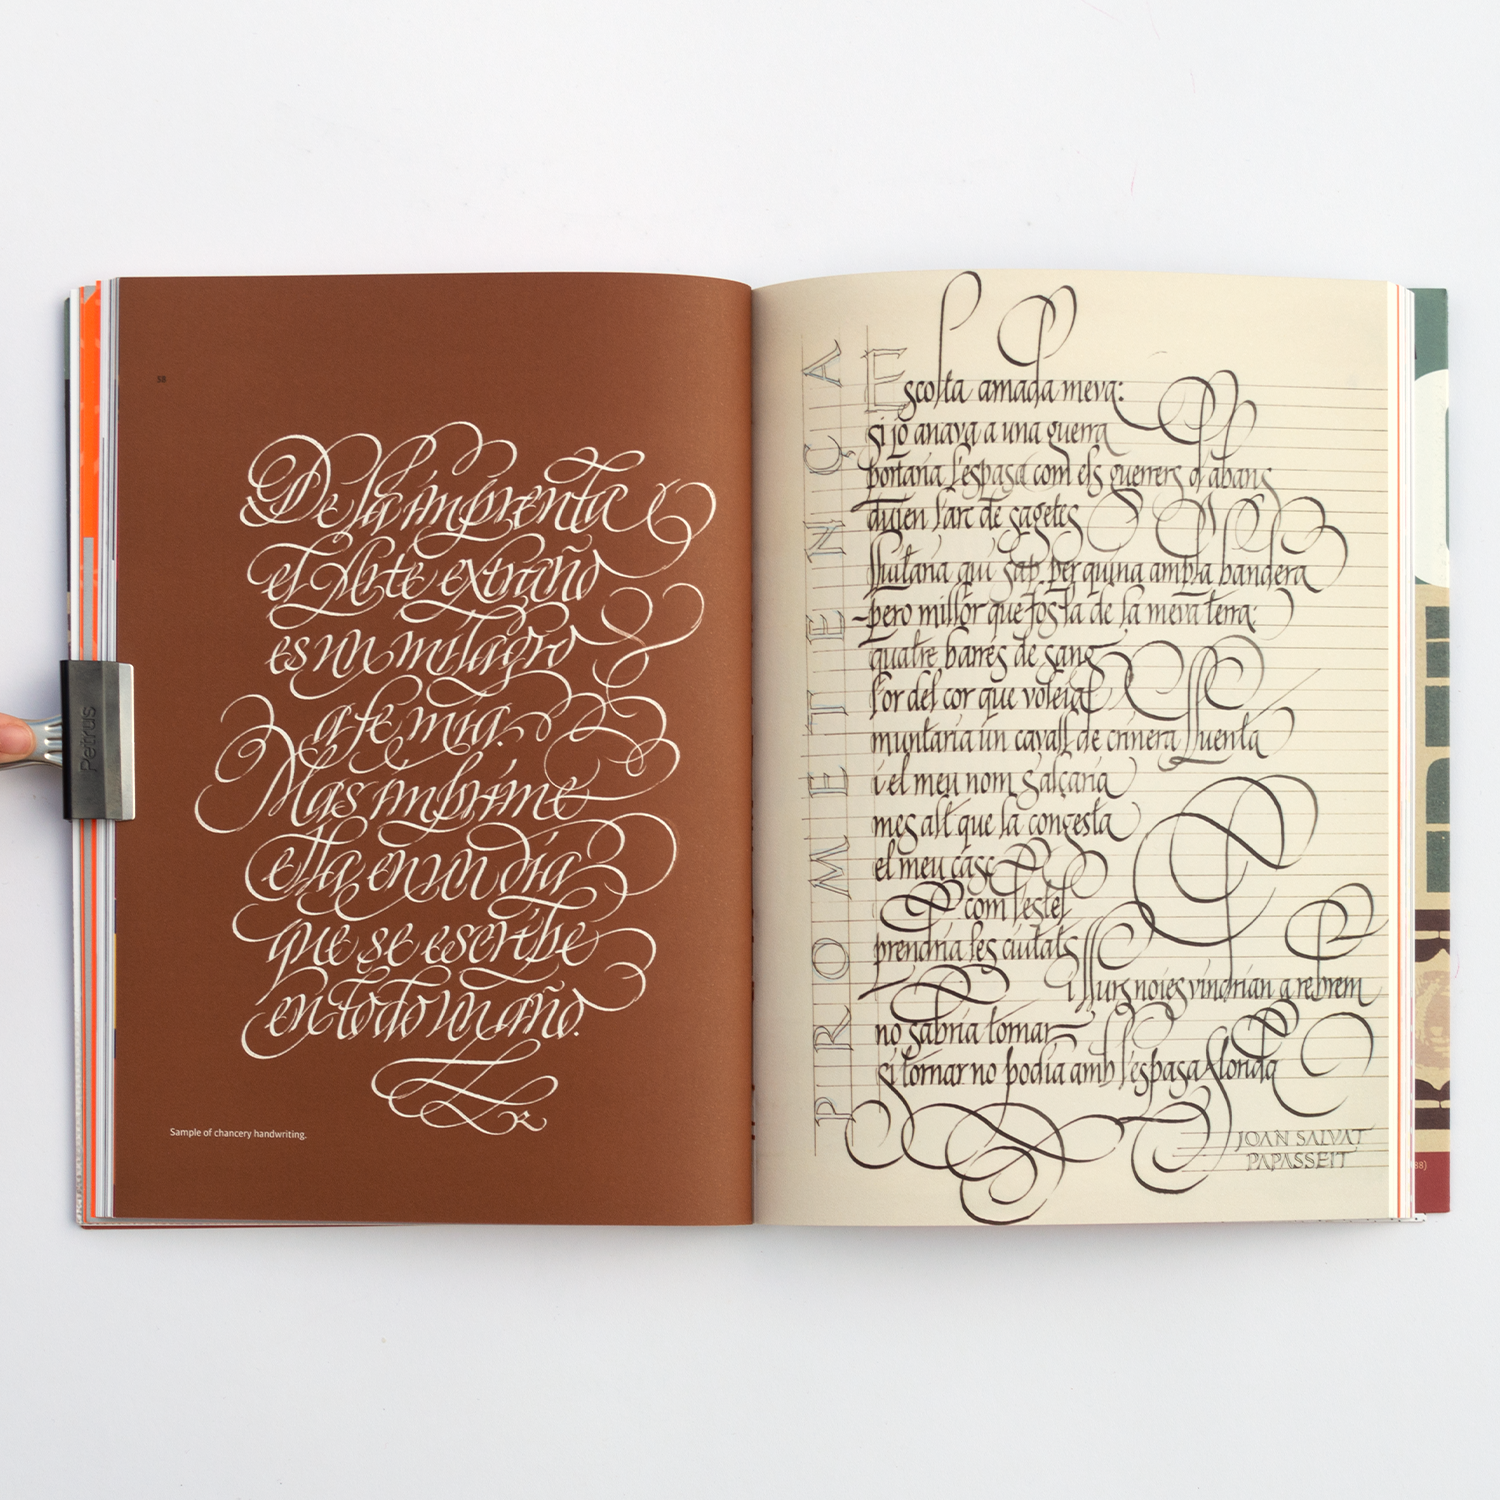 58
De la imprenta
el Arte extraño
es un milagro
a fe mia.
Mas imprime
ella en un dia
que se escribe
en todo un año.
R
Sample of chancery handwriting.
Petrus
PROMETENÇA
Escolta amada meva:
si jo anava a una guerra
portaria l'espasa com els guerrers d'abans
duien l'arc de sagetes
lluitaria qui sap per quina ampla bandera
-pero millor que fos la de la meva terra:
quatre barres de sang
l'or del cor que voleia
muntaria un cavall de crinera lluenta
i el meu nom s'alçaria
mes alt que la congesta
el meu casc
com l'estel
prendria les ciutats
i llurs noies vindrian a rebre'm
no sabria tornar
si tornar no podia amb l'espasa florida
JOAN SALVAT
PAPASSEIT
88)